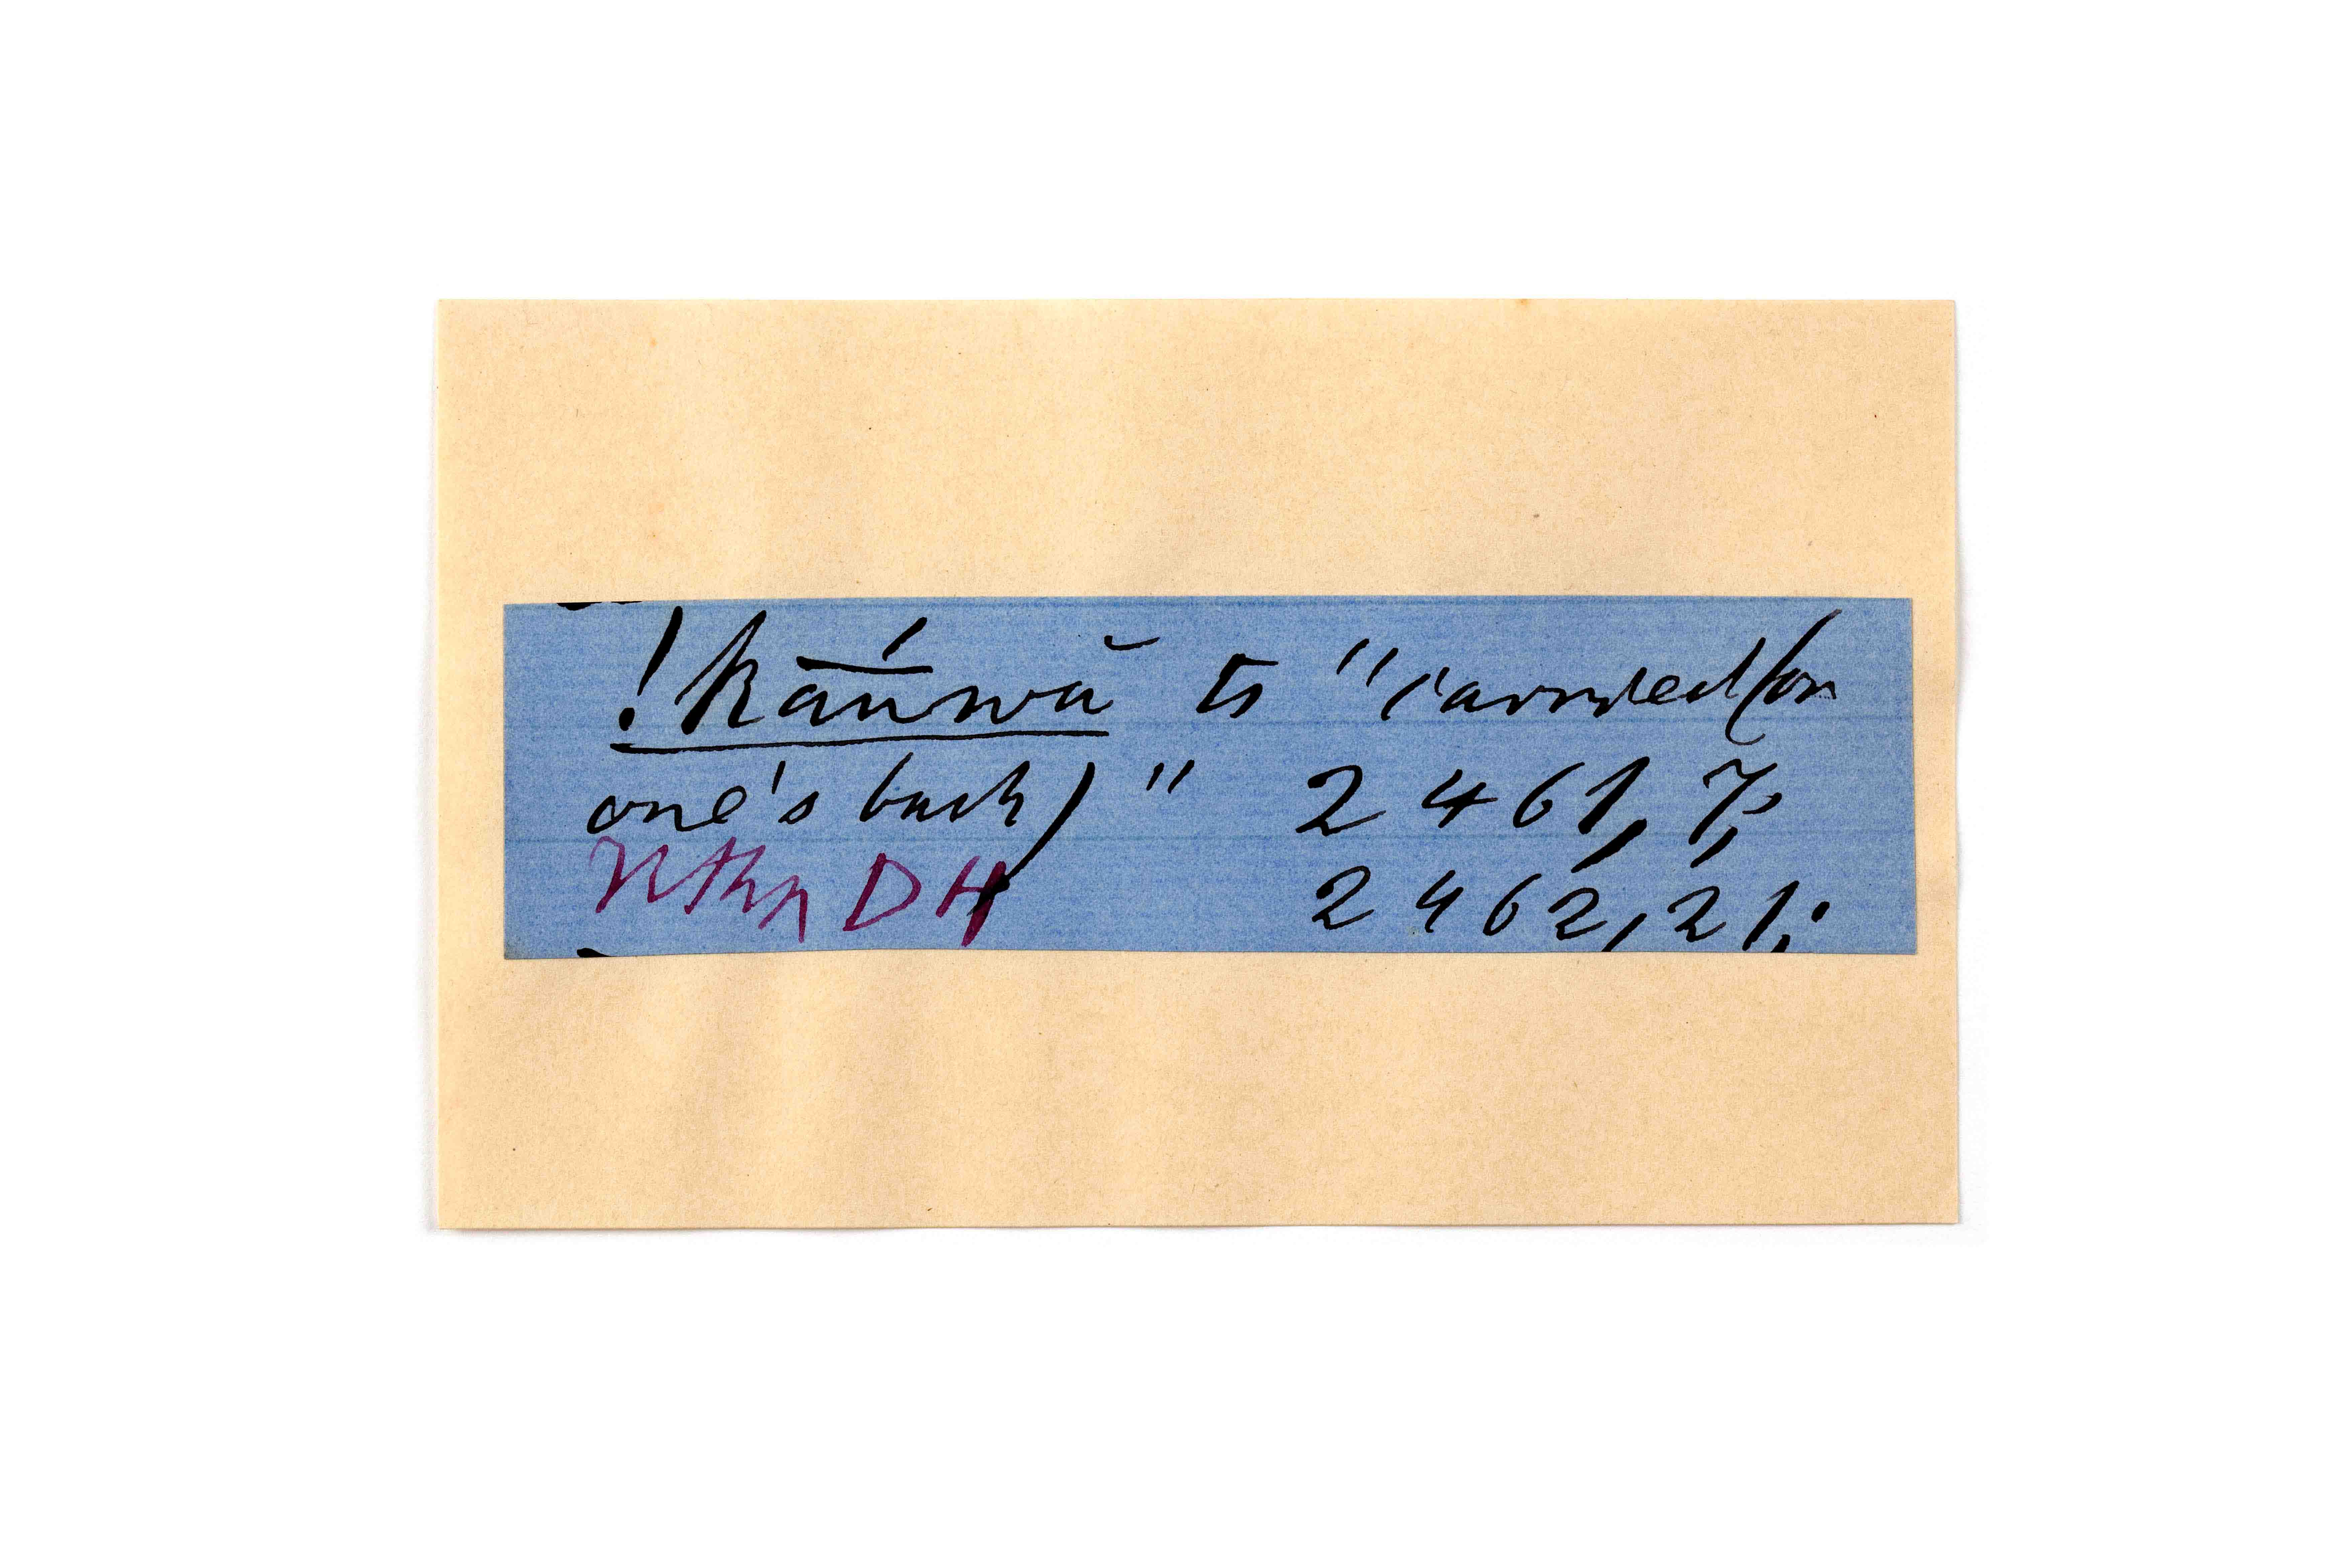 !kāúwă ts "carried (on
one's back)" 2461, 7,
DH 2462, 21,